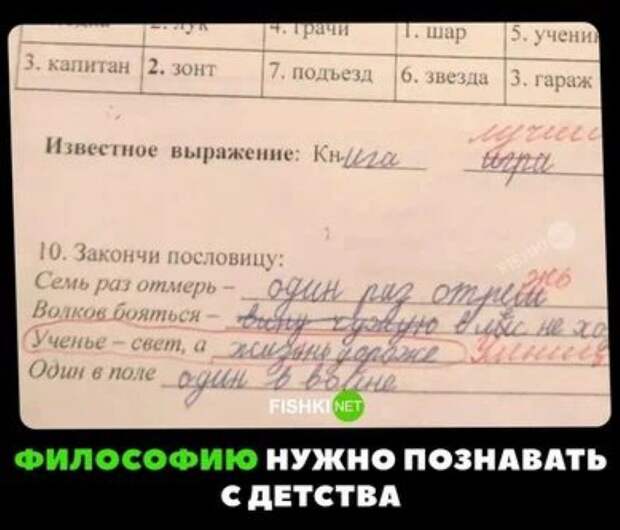 4. грачи 1. шар 5. ученик
3. капитан 2. зонт 7. подъезд 6. звезда 3. гараж
лучши
Известное выражение: Книга игра
10. Закончи пословицу:
Семь раз отмерь – один раз отрей жь
Волков бояться – в лес не хо
Ученье – свет, а жизнь дороже Умниц
Один в поле один в войне
FISHKI NET
ФИЛОСОФИЮ НУЖНО ПОЗНАВАТЬ
С ДЕТСТВА